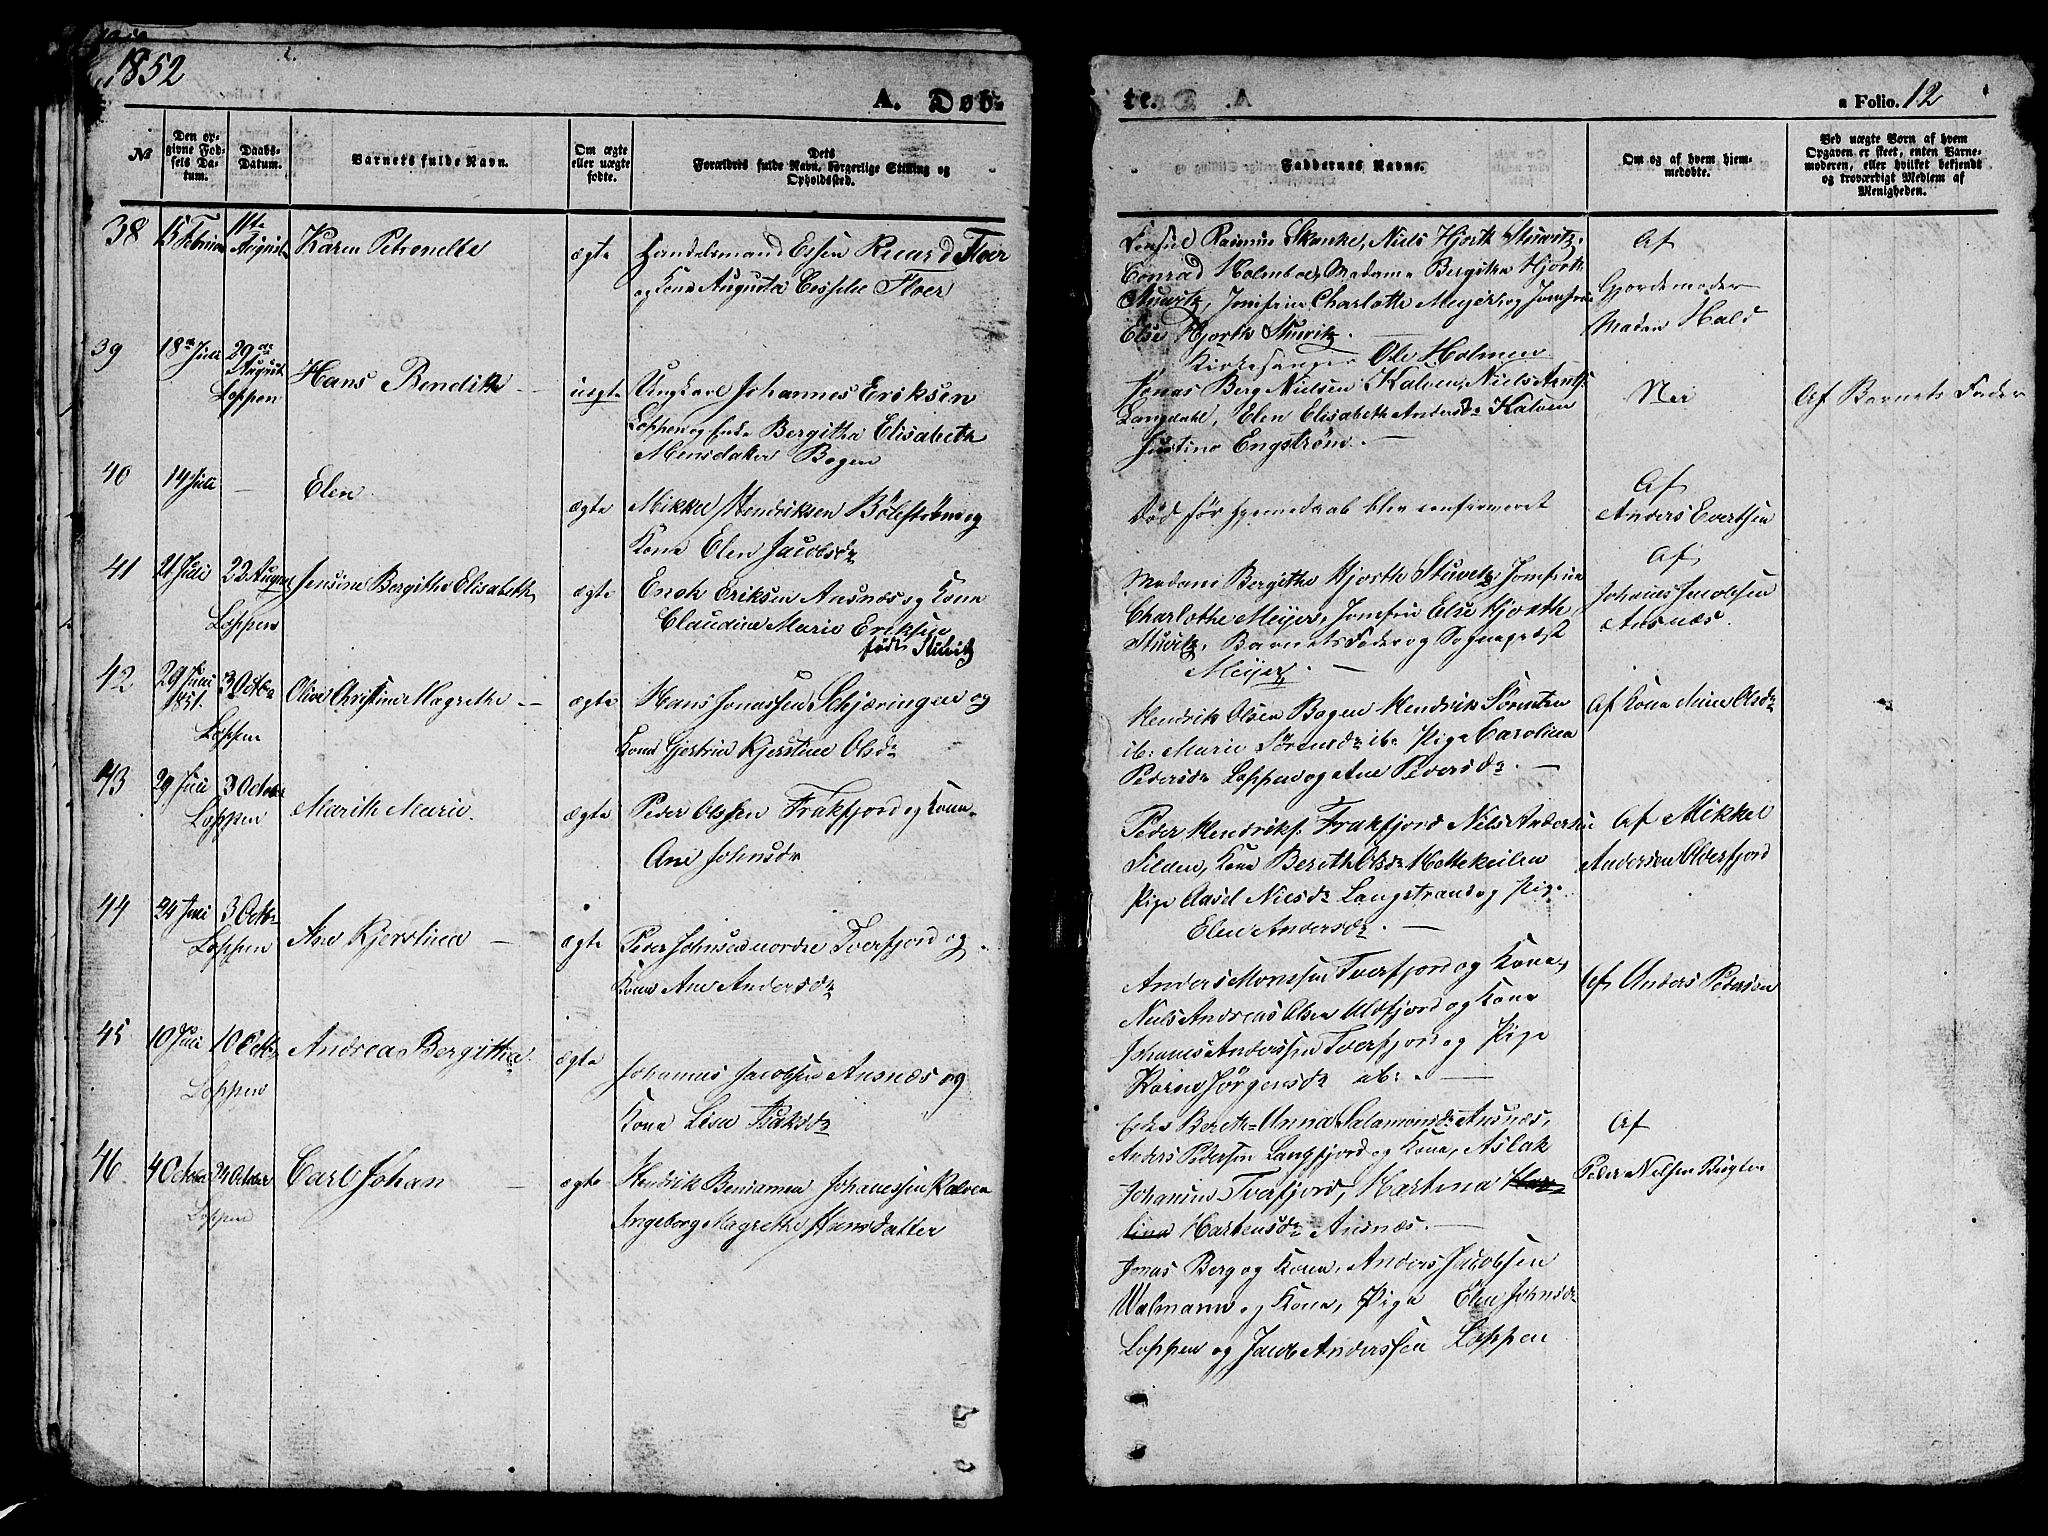 1852
A. Døb-
№
Den opgivne Fødsels Datum.
Daabs-Datum.
Barnets fulde Navn.
Om ægte eller uægte fødte.
Dets Forældres fulde Navn, borgerlige Stilling og Opholdssted.
38
15 Februar
11te August
Karen Petronelle
ægte
Handelsmand Essen Ricard Floer
og Kone Augusta Cecilie Floer
39
18de Juli
29de August
Loppen
Hans Bendik
uægte
Ungkarl Johannes Eriksen
Loppen og Enke Bergitha Elisabeth
Monsdatter Bogen
40
14 Juli
—
Elen
ægte
Mikkel Hendriksen Bölestrøm og
Kone Elen Jacobsdr
41
21 Juli
22 August
Loppen
Jensine Bergithe Elisabeth
ægte
Enok Eriksen Ansnæs og Kone
Claudine Marie Eriksen
født Stuwitz
42
29 Juni 1851.
3 Octbr
Loppen
Oline Christine Magrethe —
ægte
Hans Jonassen Schjæringen og
Kone Gjertrue Kjerstine Olsdr
43
29 Juli
3 October
Loppen
Marith Marie
ægte
Peder Olssen Frakfjord og Kone
Ane Johnsdr
44
24 Juni
3 Octbr
Loppen
Ane Kjerstina —
ægte
Peder Johnsen nordre Tverfjord og
Kone Ane Andersdr
45
10 Juli
10 Octbr
Loppen
Andrea Bergitha
ægte
Johannes Jacobsen Ansnæs og
Kone Lisa Isaksdr
46.
4 October
24 October
Loppen
Carl Johan —
ægte
Hendrik Beniamin Johanessen Kalven
Ingeborg Magrethe Hansdatter
te.
a Folio. 12
Faddernes Navne.
Om og af hvem hjemmedøbte.
Ved uægte Børn af hvem Opgaven er skeet, enten Barnemoderen, eller hvilket bekjendt og troværdigt Medlem af Menigheden.
Rasmus Skanke, Niels Hjorth Stuwitz,
Conrad Holmboe, Madame Bergitha Hjorth
Stuwitz, Jomfrue Charlotte Meyer, og Jomfrue
Else Hjorth Stuwitz.
Kirkesanger Ole Holmen
Af
Gjordemoder
Madam Hald
Jonas Berg Nielsen Kalven, Niels
Langdahl, Elen Elisabeth Andersdr Kalven
Justina Engstrøm. —
Nei
Af Barnets Fader
Død før Hjemmedaab blev confirmeret
Af
Anders Evertsen
Madam Bergithe Hjorth Stuwitz, Jomfrue
Charlothe Meijer, Jomfru Else Hjorth
Stuwitz, Barnets Fader og Sognepræst
Meijer. —
Af
Johanes Jacobsen
Ansnæs.
Hendrik Olsen Bogen Hendrik Sørensen
ib: Marie Sørensdr ib: Pige Carolina
Pedersdr Loppen og Ane Pedersdr. —
Af Kone Olsdr
Peder Hendriks. Frakfjord Niels Andersen
Silden, Kone Berith Olsdr Mottekeilen
Pige Aasel Nielsdr Langstrand og Pige
Elen Andersdr. —
Af Mikkel
Andersen Olderfjord
Anders Monssen Tverfjord og Kone,
Niels Andreas Olsen Ulsfjord og Kone
Johanes Anderssen Tverfjord og Pige
Karen Jørgensdr ib: . —
Af Anders Pedersen
Enke Berethe Anna Salamonsdr Ansnæs,
Anders Pedersen Langfjord og Kone, Aslak
Johansen Tverfjord, Martina Mar-
tina Martensdr Ansnæs. —
Af
Peder Nielsen
Jonas Berg og Kone, Anders Jacobsen
Walmann og Kone, Pige Elen Johnsdr
Loppen og Jacob Anderssen Loppen